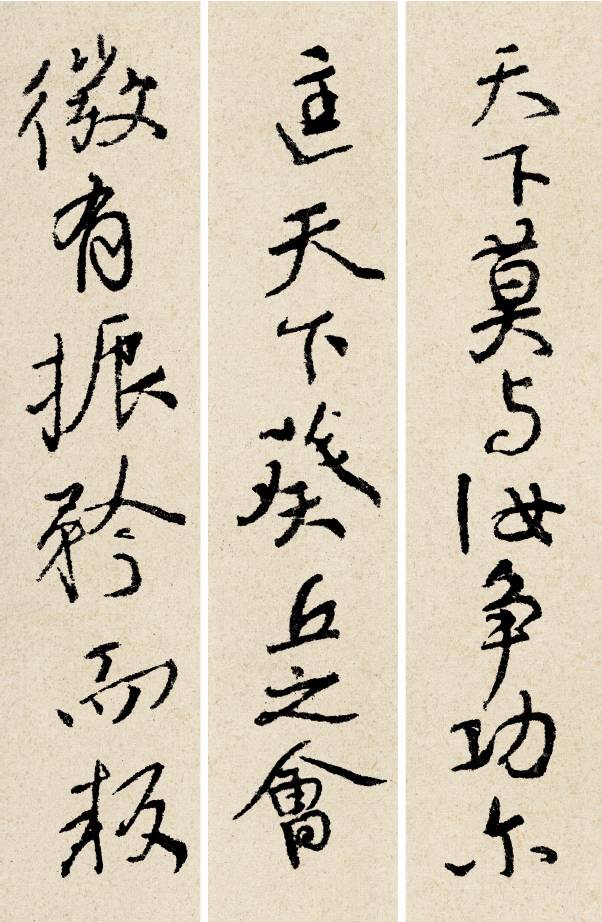 天下莫与汝争功尔
匡天下葵丘之會
微有振矜而叛